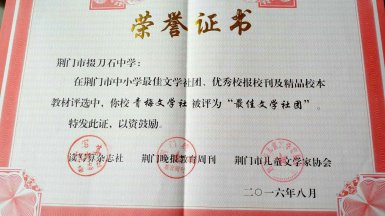 荣誉证书
荆门市掇刀石中学：
在荆门市中小学最佳文学社团、优秀校报校刊及精品校本
教材评选中，你校青梅文学社被评为“最佳文学社团”。
特发此证，以资鼓励。
读写算杂志社 荆门晚报教育周刊 荆门市儿童文学家协会
二〇一六年八月